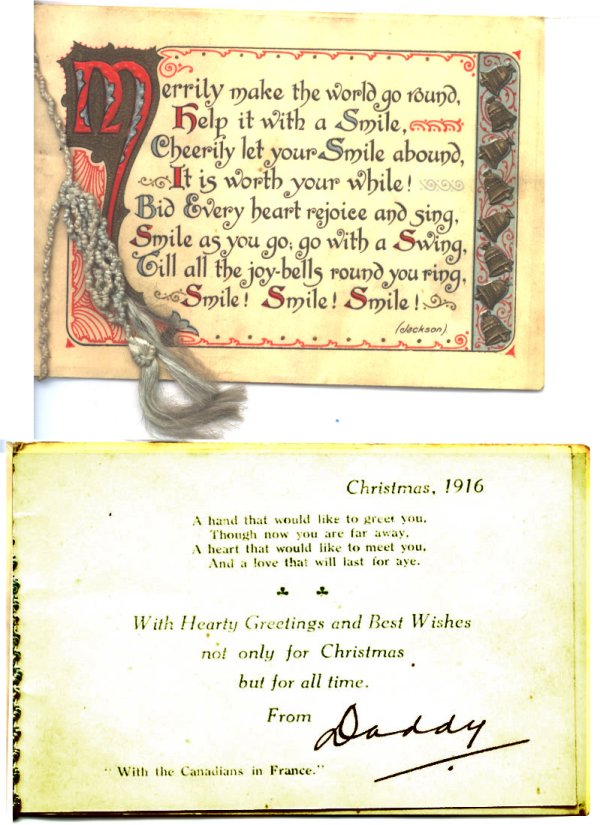 Merrily make the world go round,
Help it with a Smile,
Cheerily let your Smile abound,
It is worth your while!
Bid Every heart rejoice and sing,
Smile as you go; go with a Swing,
Till all the joy-bells round you ring,
Smile! Smile! Smile!
(Jackson)
Christmas, 1916
A hand that would like to greet you,
Though now you are far away,
A heart that would like to meet you,
And a love that will last for aye.
With Hearty Greetings and Best Wishes
not only for Christmas
but for all time.
From Daddy
"With the Canadians in France."